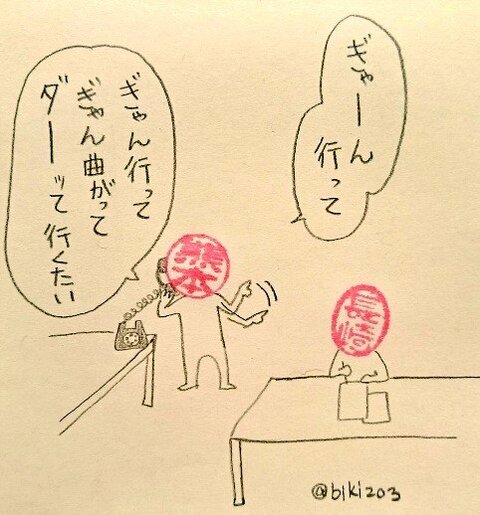 ぎゃーん
行って
ぎゃん行って
ぎゃん曲がって
ダーッて行くたい
熊本
長崎
@biki203